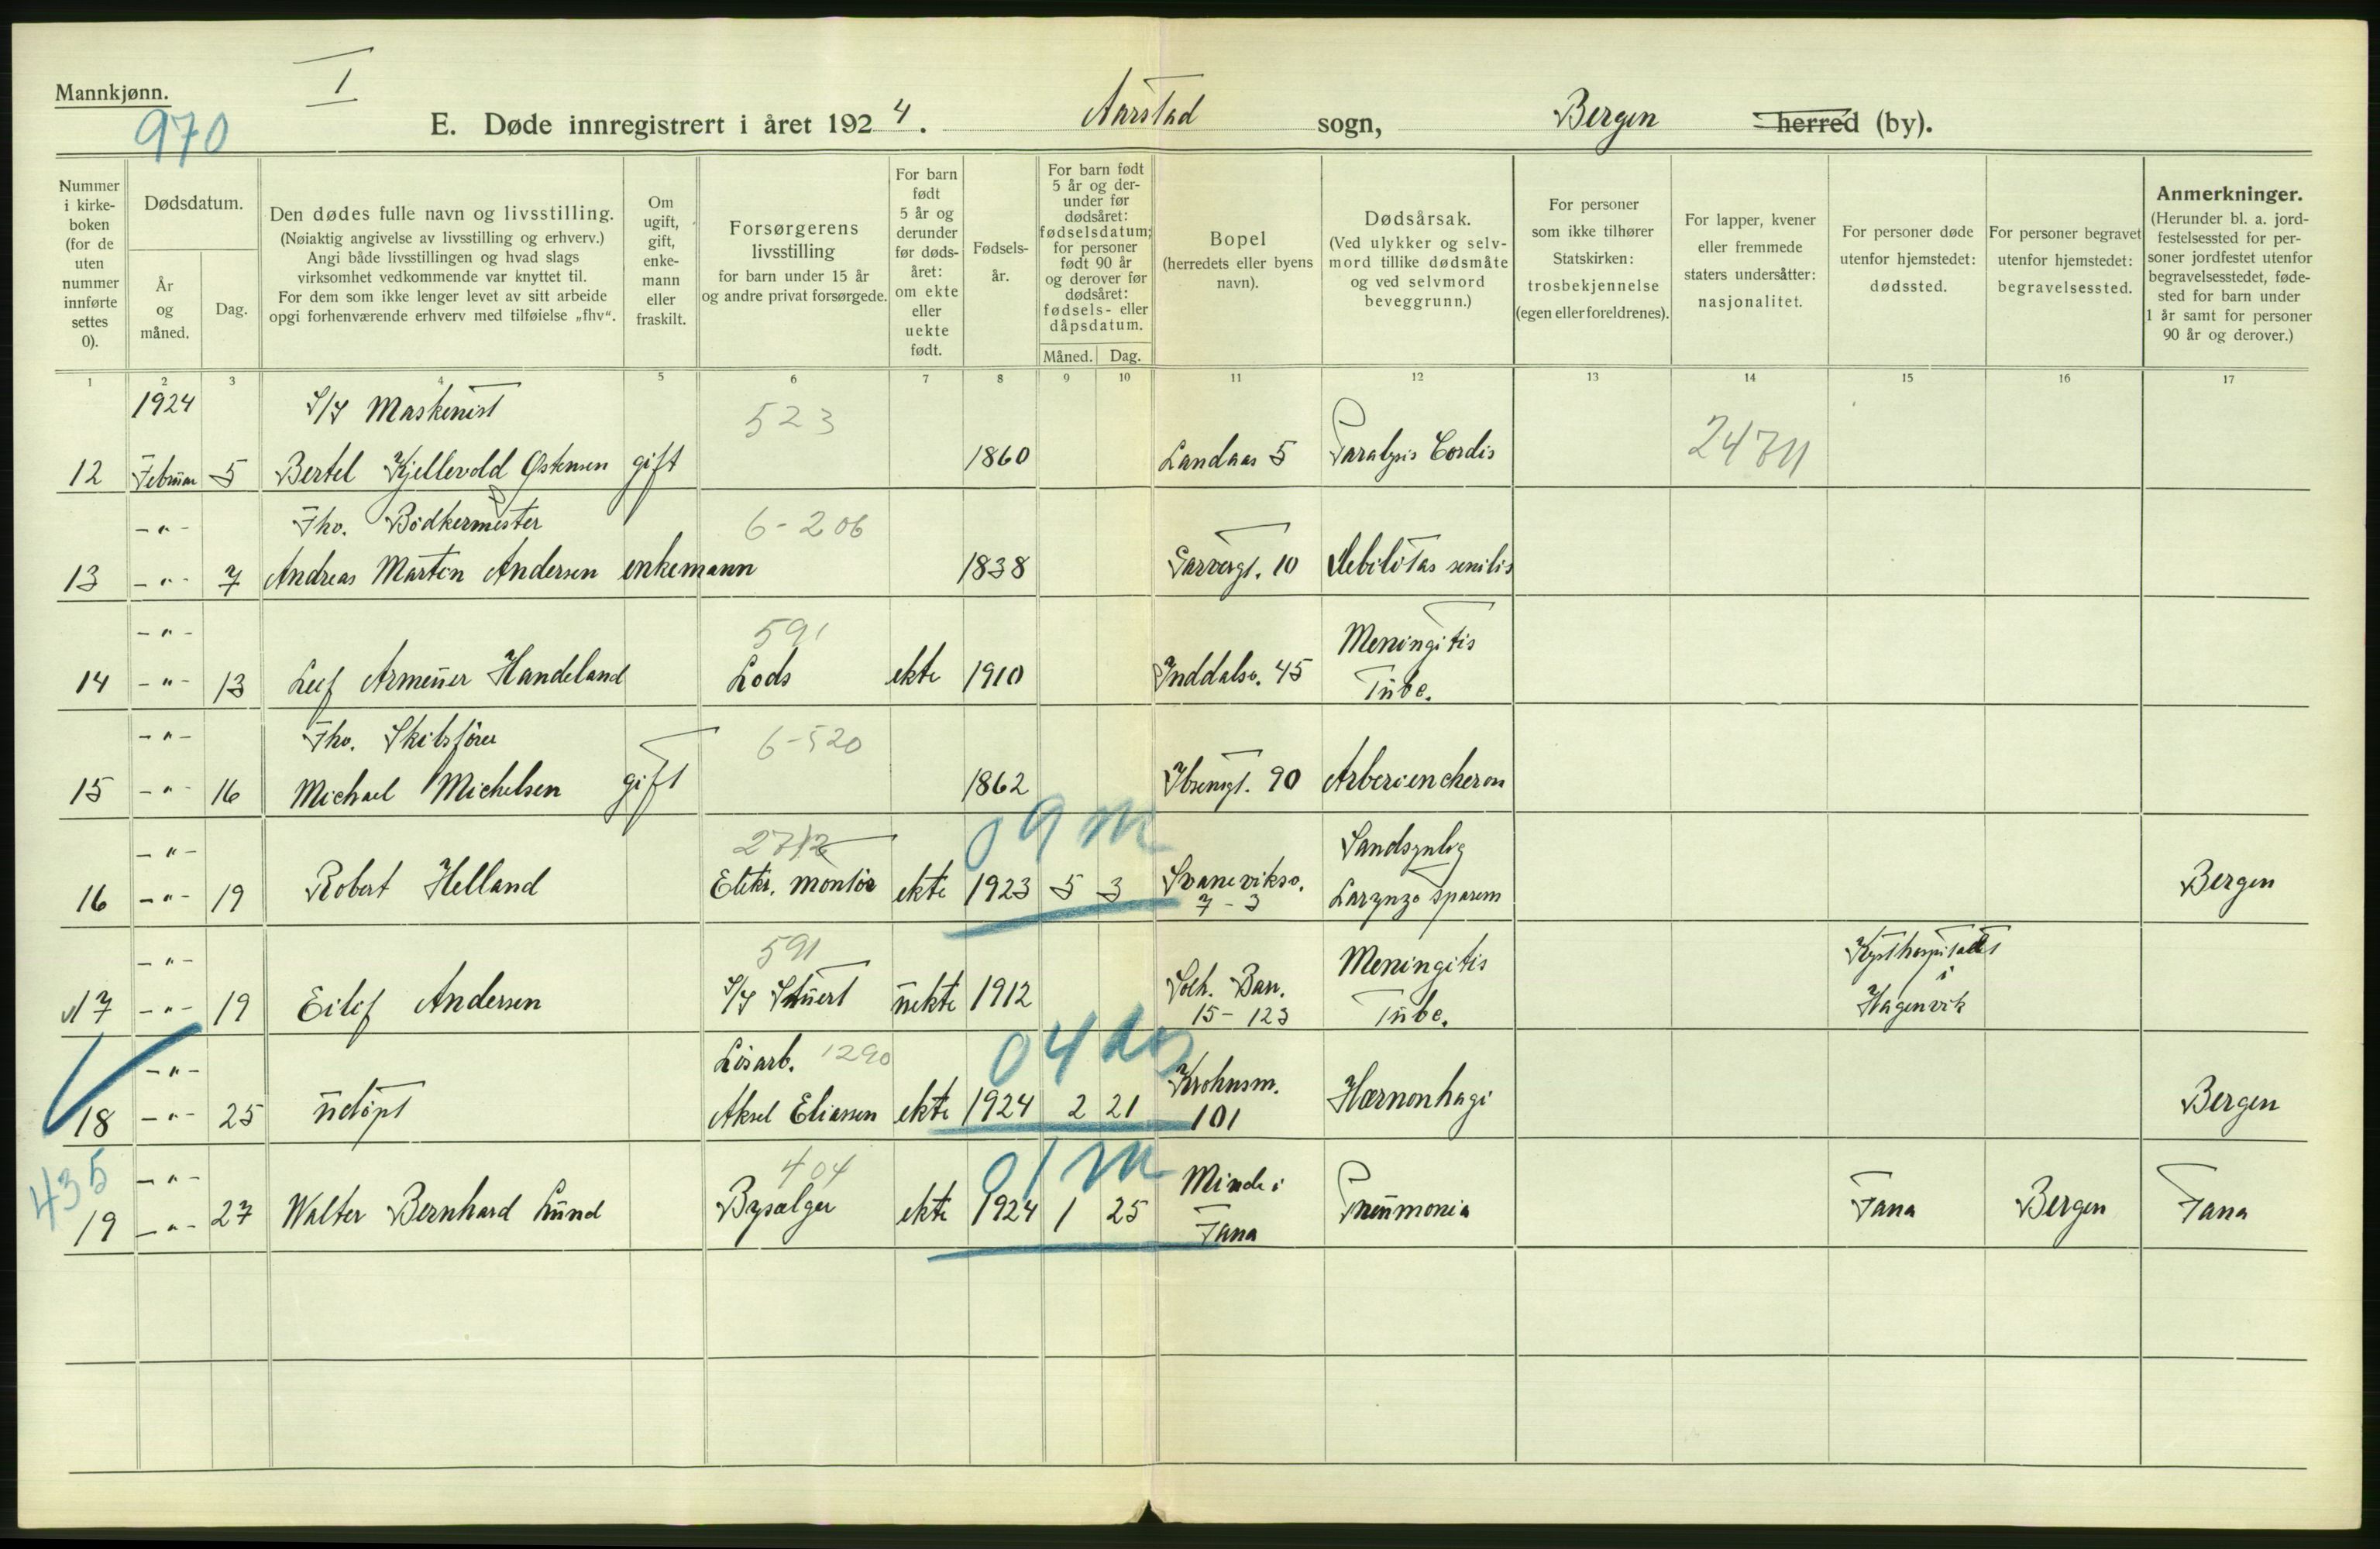 Mannkjønn.
I
970
E. Døde innregistrert i året 1924. Aarstad sogn, Bergen herred (by).
Nummer i kirkeboken (for de uten nummer innførte settes 0).
Dødsdatum.
År og måned.
Dag.
Den dødes fulle navn og livsstilling.
(Nøiaktig angivelse av livsstilling og erhverv.)
Angi både livsstillingen og hvad slags
virksomhet vedkommende var knyttet til.
For dem som ikke lenger levet av sitt arbeide
opgi forhenværende erhverv med tilføielse „fhv“.
Om ugift, gift, enkemann eller fraskilt.
Forsørgerens livsstilling
for barn under 15 år
og andre privat forsørgede.
For barn født 5 år og derunder før dødsåret: om ekte eller uekte født.
Fødselsår.
For barn født 5 år og derunder før dødsåret: fødselsdatum; for personer født 90 år og derover før dødsåret: fødsels- eller dåpsdatum.
Måned. Dag.
Bopel
(herredets eller byens navn).
Dødsårsak.
(Ved ulykker og selvmord tillike dødsmåte og ved selvmord beveggrunn.)
For personer som ikke tilhører Statskirken: trosbekjennelse (egen eller foreldrenes).
For lapper, kvener eller fremmede staters undersåtter: nasjonalitet.
For personer døde utenfor hjemstedet: dødssted.
For personer begravet utenfor hjemstedet: begravelsessted.
Anmerkninger.
(Herunder bl. a. jordfestelsessted for personer jordfestet utenfor begravelsesstedet, fødested for barn under 1 år samt for personer 90 år og derover.)
1 2 3 4 5 6 7 8 9 10 11 12 13 14 15 16 17
1924 S/S Maskenist 523
12 Februar 5 Bertel Kjellevold Østensen gift 1860 Landaas 5 Paralysis Cordis
-"- Fhv. Bødkermester 6-206
13 -"- 7 Andreas Martin Andersen enkemann 1838 Garvergt. 10 Debilitas senilis
-"- 591 Meningitis
14 -"- 13 Leif Armeüer Handeland Lods ekte 1910 Inddalsv. 45 Tübe.
-"- Fhv. Skibsfører 6-520
15 -"- 16 Michael Michelsen gift 1862 Ibsensgt. 90
09 m
-"- Sandsynlig
16 -"- 19 Robert Helland Elektr. montør ekte 1923 5 3 Svaneviksv. 7-3 Bergen
-"- 591 Meningitis Kysthospitalet i
17 -"- 19 Eilif Andersen S/S Stüert üekte 1912 Solh. Bar. 15-123 Tübe. Hagenvik
-"- Løsarb. 1290 04
18 -"- 25 üdøpt Aksel Eliassen ekte 1924 2 21 Krohnsm. 101 Bergen
435
-"- 404 01 m
19 -"- 27 Walter Bernhard Lünd Bysælger ekte 1924 1 25 Minde i Fana Pneümonia Fana Bergen Fana